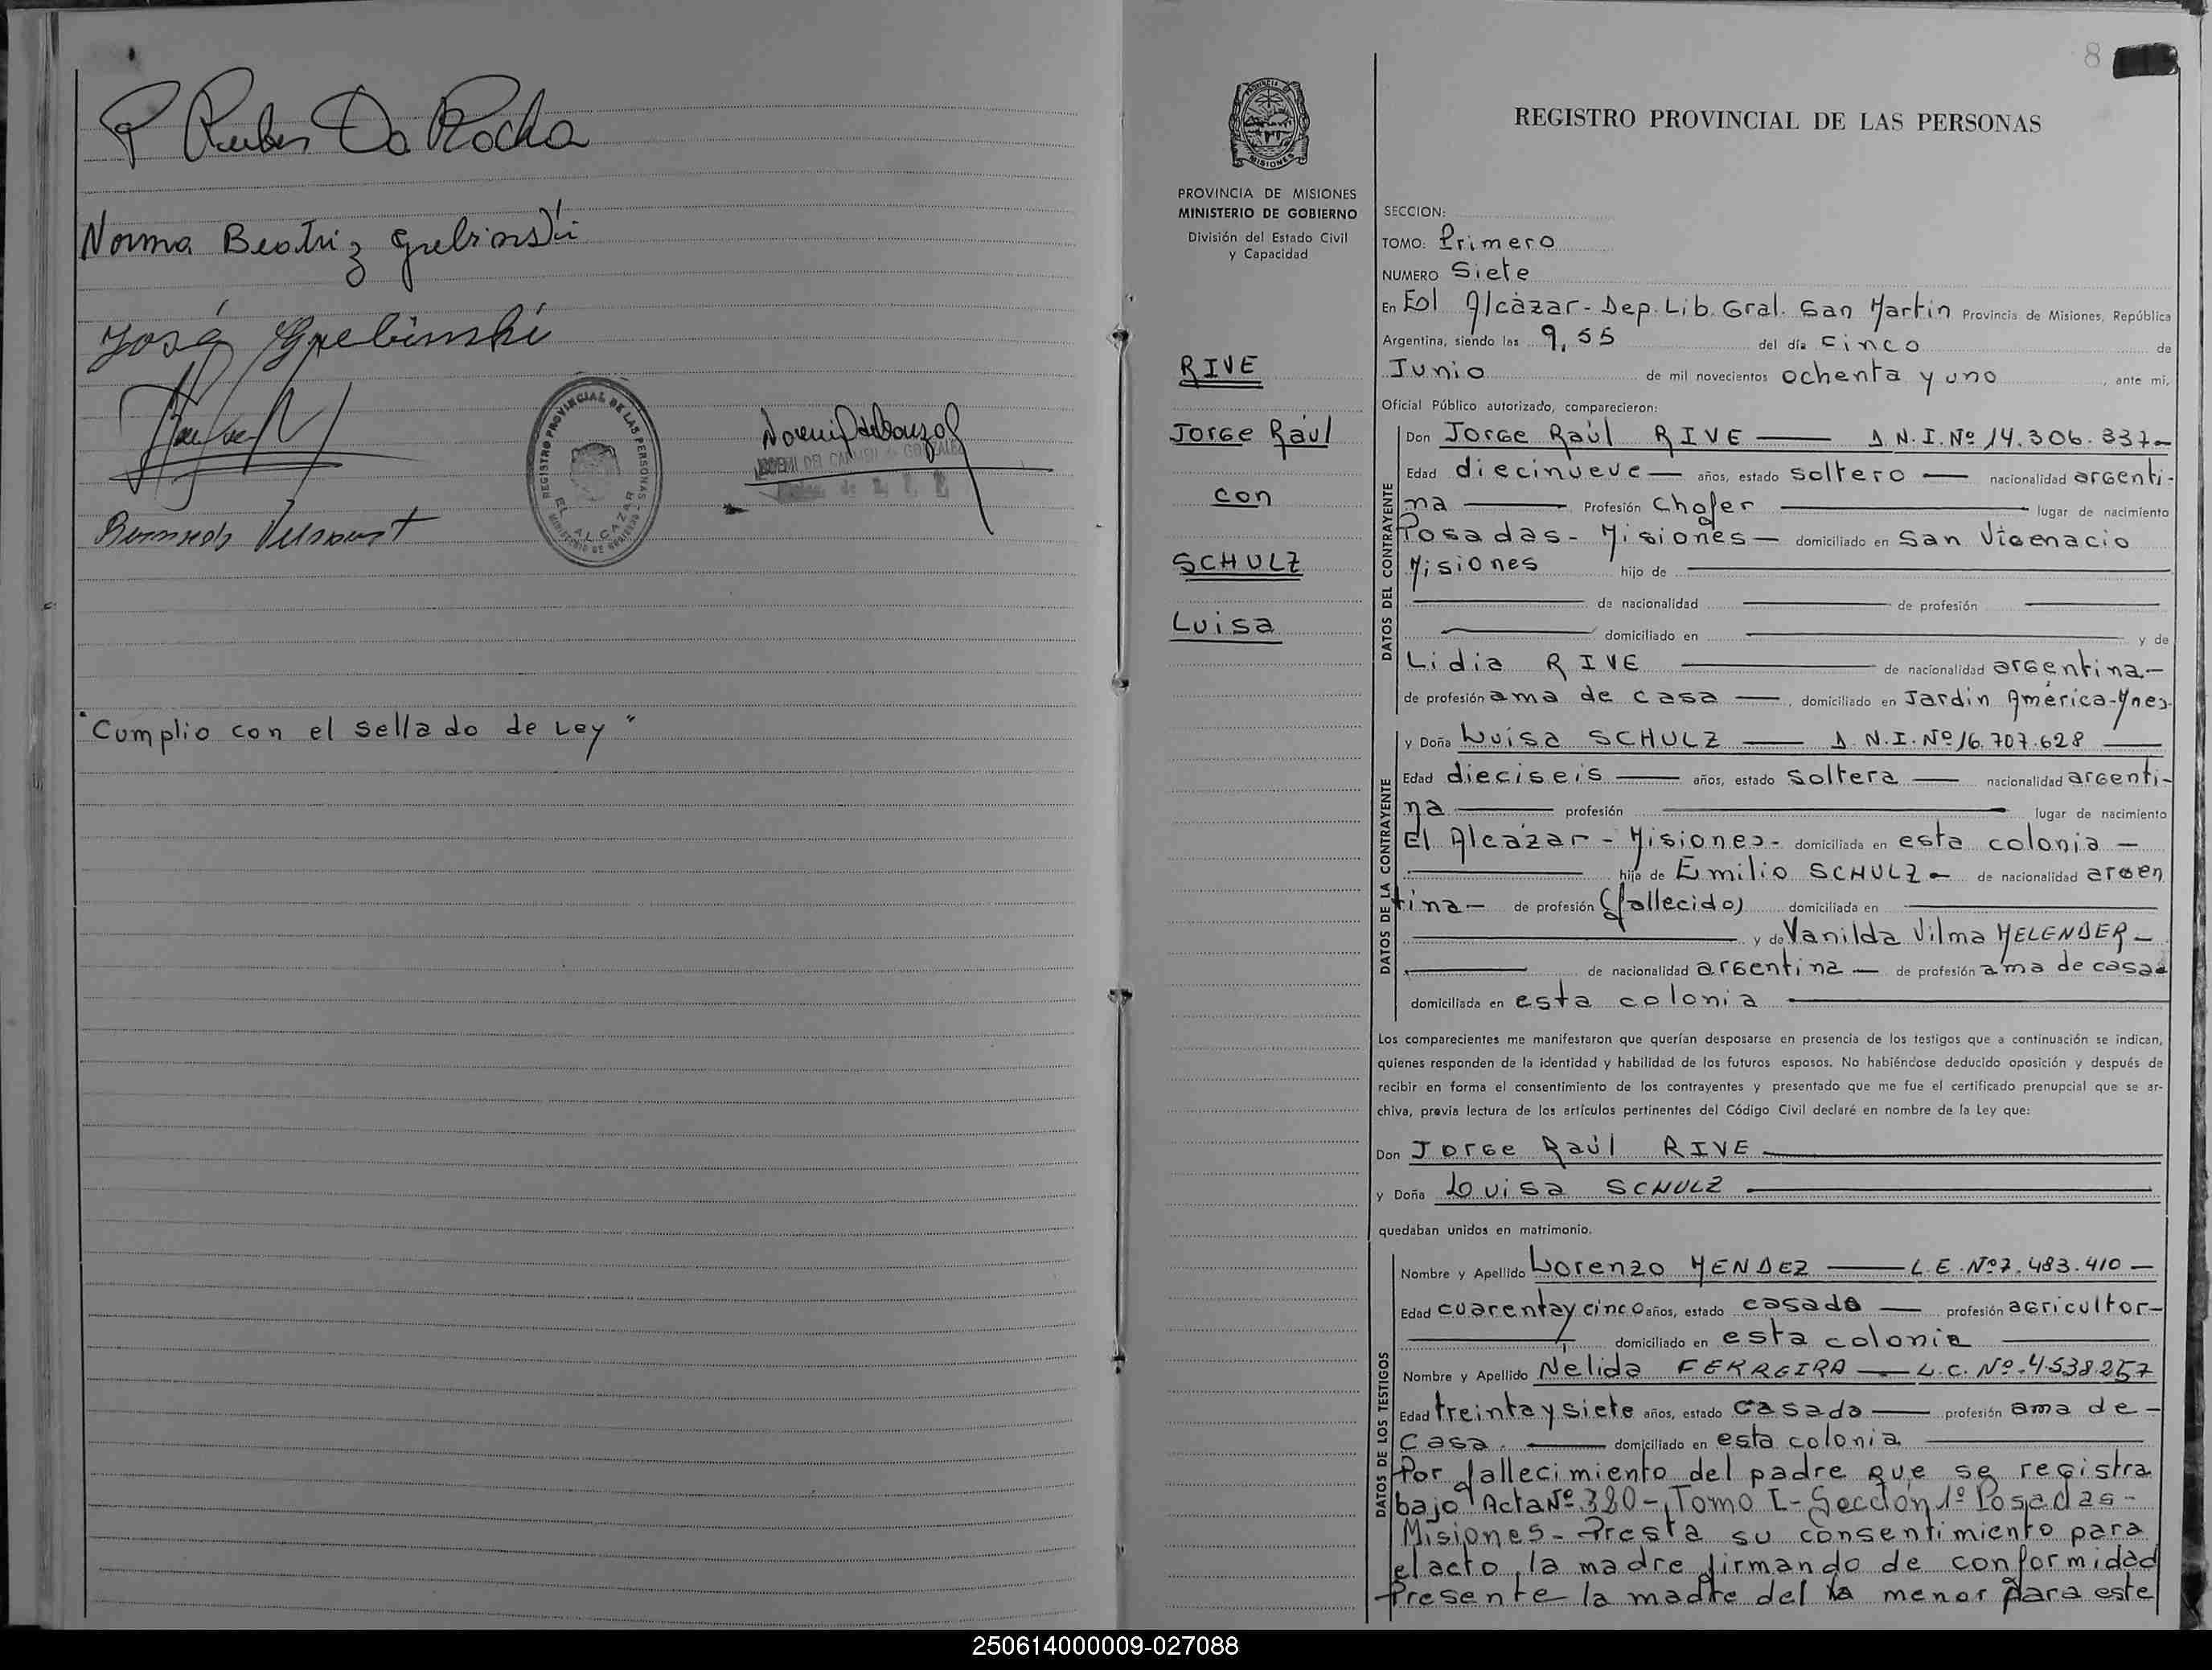 P Ruben Da Rocha
Norma Beatriz Grebinski
José Grebinski
REGISTRO PROVINCIAL DE LAS PERSONAS
EL ALCAZAR
"Cumplio con el sellado de Ley"
8
PROVINCIA DE MISIONES
MINISTERIO DE GOBIERNO
División del Estado Civil
y Capacidad
RIVE
Jorge Raúl
con
SCHULZ
Luisa
REGISTRO PROVINCIAL DE LAS PERSONAS
SECCION:
TOMO: Primero
NUMERO Siete
En Eol Alcázar - Dep. Lib. Gral. San Martin Provincia de Misiones, República
Argentina, siendo las 9,55 del día cinco de
Junio de mil novecientos ochenta y uno, ante mí,
Oficial Público autorizado, comparecieron:
DATOS DEL CONTRAYENTE
Don Jorge Raúl RIVE — D.N.I. Nº 14.306.337-
Edad diecinueve — años, estado soltero — nacionalidad argenti-
na — Profesión chofer — lugar de nacimiento
Posadas - Misiones — domiciliado en San Vigenacio
Misiones hijo de —
— de nacionalidad — de profesión —
— domiciliado en — y de
Lidia RIVE — de nacionalidad argentina -
de profesión ama de casa —, domiciliado en Jardín América-Mnes-
DATOS DE LA CONTRAYENTE
y Doña Luisa SCHULZ — D.N.I. Nº 16.707.628 —
Edad dieciseis — años, estado soltera — nacionalidad argenti-
na — profesión — lugar de nacimiento
El Alcázar - Misiones - domiciliada en esta colonia —
— hija de Emilio SCHULZ - de nacionalidad argen
tina - de profesión (fallecido) domiciliada en —
— y de Vanilda Vilma MELENDER -
— de nacionalidad argentina — de profesión ama de casa-
domiciliada en esta colonia —
Los comparecientes me manifestaron que querían desposarse en presencia de los testigos que a continuación se indican,
quienes responden de la identidad y habilidad de los futuros esposos. No habiéndose deducido oposición y después de
recibir en forma el consentimiento de los contrayentes y presentado que me fue el certificado prenupcial que se ar-
chiva, previa lectura de los artículos pertinentes del Código Civil declaré en nombre de la Ley que:
Don Jorge Raúl RIVE —
y Doña Luisa SCHULZ —
quedaban unidos en matrimonio.
DATOS DE LOS TESTIGOS
Nombre y Apellido Lorenzo MENDEZ — L.E. Nº 7.483.410 —
Edad cuarenta y cinco años, estado casado — profesión agricultor-
— domiciliado en esta colonia —
Nombre y Apellido Nélida FERREIRA — L.C. Nº 4.538.257
Edad treinta y siete años, estado casada — profesión ama de -
casa. — domiciliado en esta colonia —
Por fallecimiento del padre que se registra
bajo Acta Nº 320 - Tomo I - Sección 1º Posadas -
Misiones - Presta su consentimiento para
el acto, la madre firmando de conformidad
Presente la madre del la menor para este
250614000009-027088